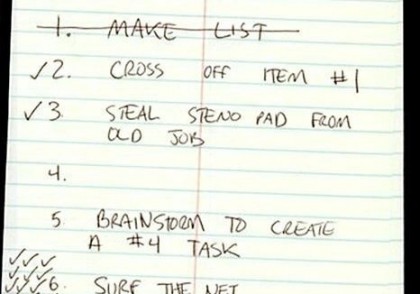 1. MAKE LIST
✓2. CROSS OFF ITEM #1
✓3. STEAL STENO PAD FROM
OLD JOB
4.
5. BRAINSTORM TO CREATE
A #4 TASK
6. SURF THE NET